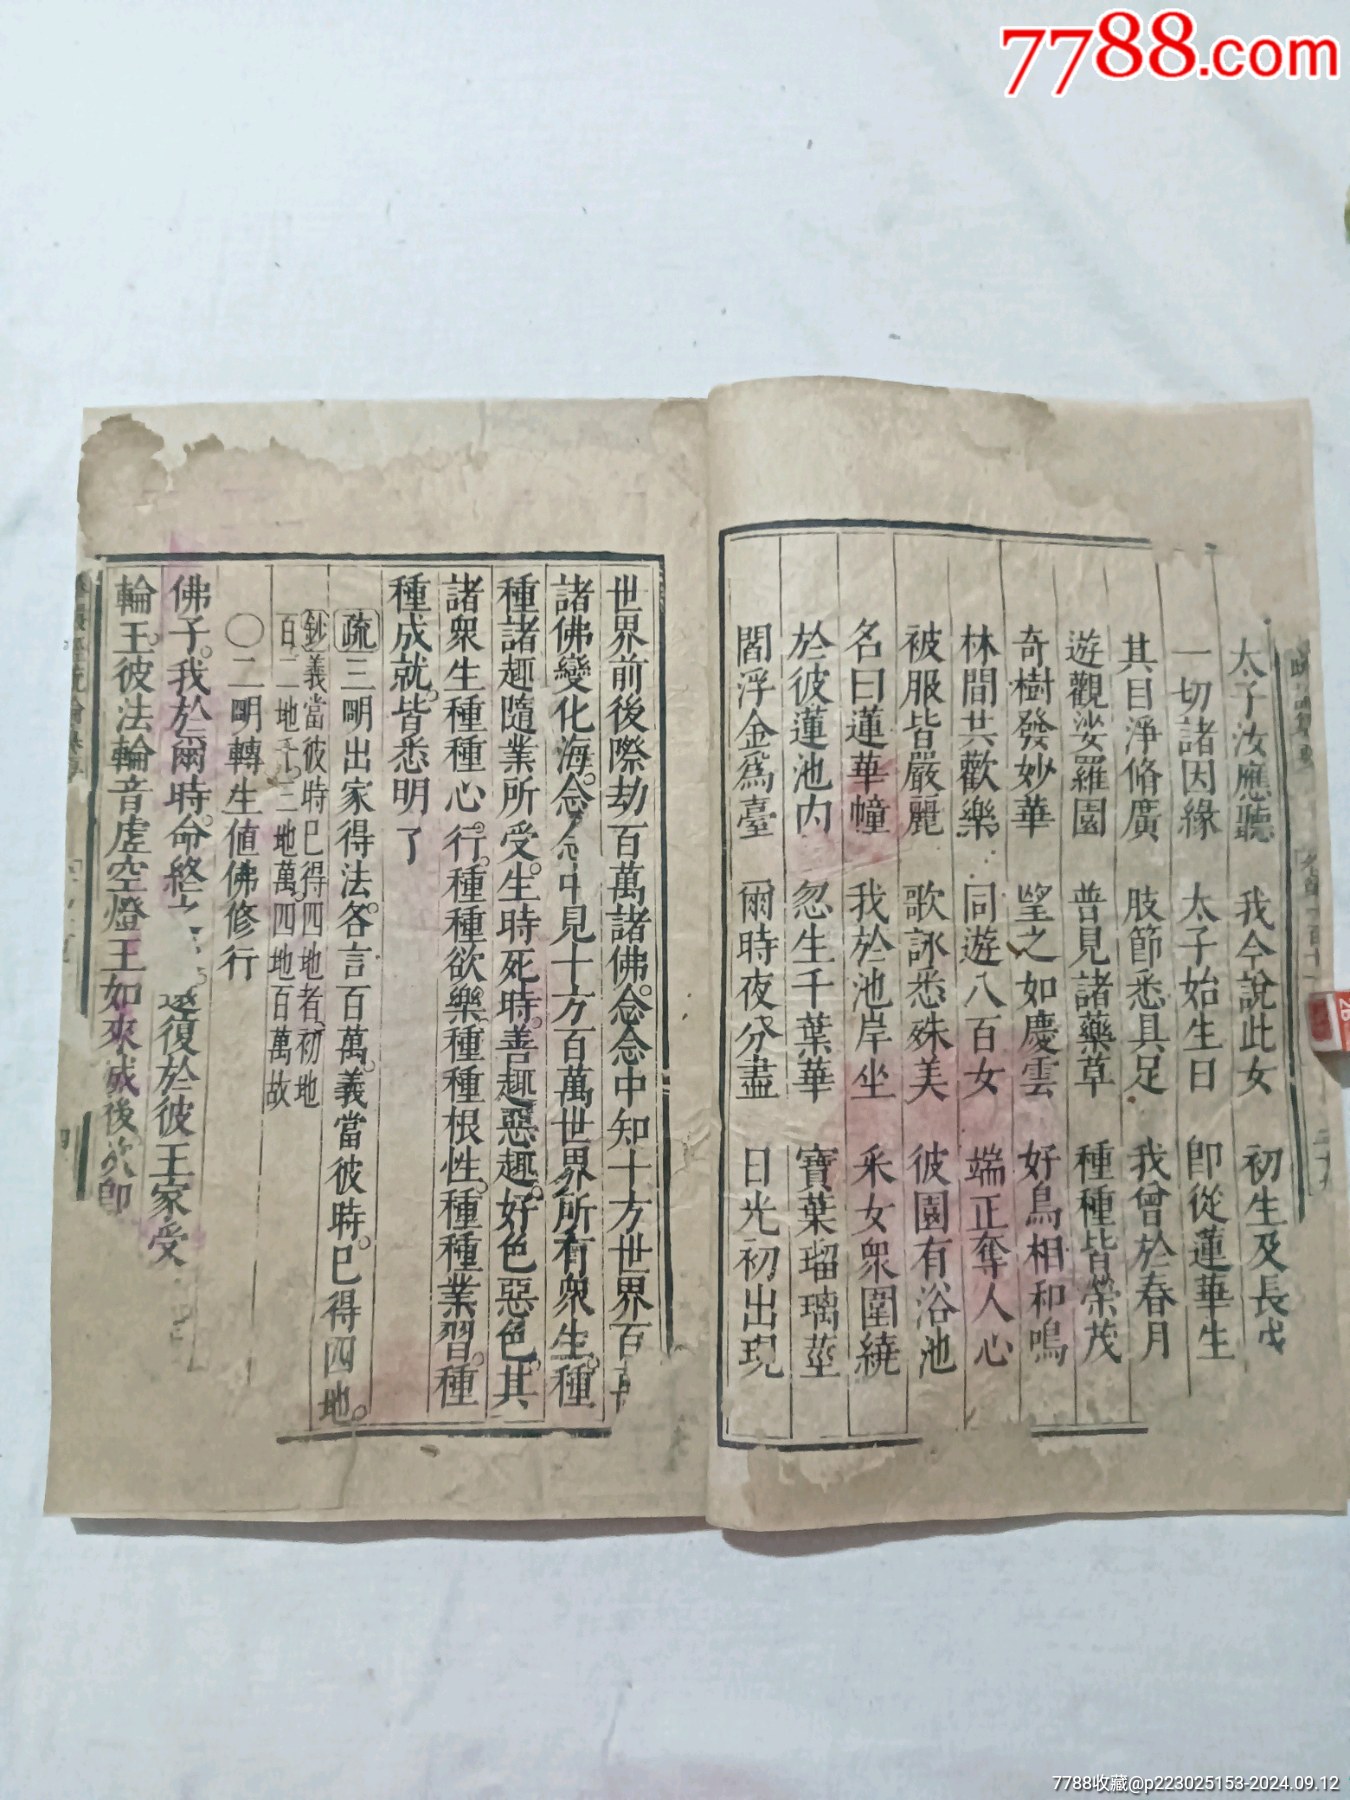 7788.com
太子汝應聽　我今說此女　初生及長
一切諸因緣　太子始生日　卽從蓮華生
其目淨脩廣　肢節悉具足　我曾於春月
遊觀娑羅園　普見諸藥草　種種皆榮茂
奇樹發妙華　望之如慶雲　好鳥相和鳴
林間共歡樂　同遊八百女　端正奪人心
被服皆嚴麗　歌詠悉殊美　彼園有浴池
名曰蓮華幢　我於池岸坐　釆女衆圍繞
於彼蓮池内　忽生千葉華　寶葉瑠璃莖
閻浮金爲臺　爾時夜分盡　日光初出現
世界前後際劫百萬諸佛。念念中知十方世界百
諸佛變化海。念念中見十方百萬世界所有衆生。種
種諸趣隨業所受。生時死時。善趣惡趣。好色惡色。其
諸衆生種種心行。種種欲樂。種種根性。種種業習。種
種成就。皆悉明了
疏三明出家得法。各言百萬。義當彼時。巳得四地。
鈔義當彼時巳得四地者。初地
百二地千。三地萬。四地百萬故
〇二明轉生値佛修行
佛子。我於爾時。命終 還復於彼王家受
輪王。彼法輪音虛空燈王如來 滅後次卽
7788收藏@p223025153-2024.09.12